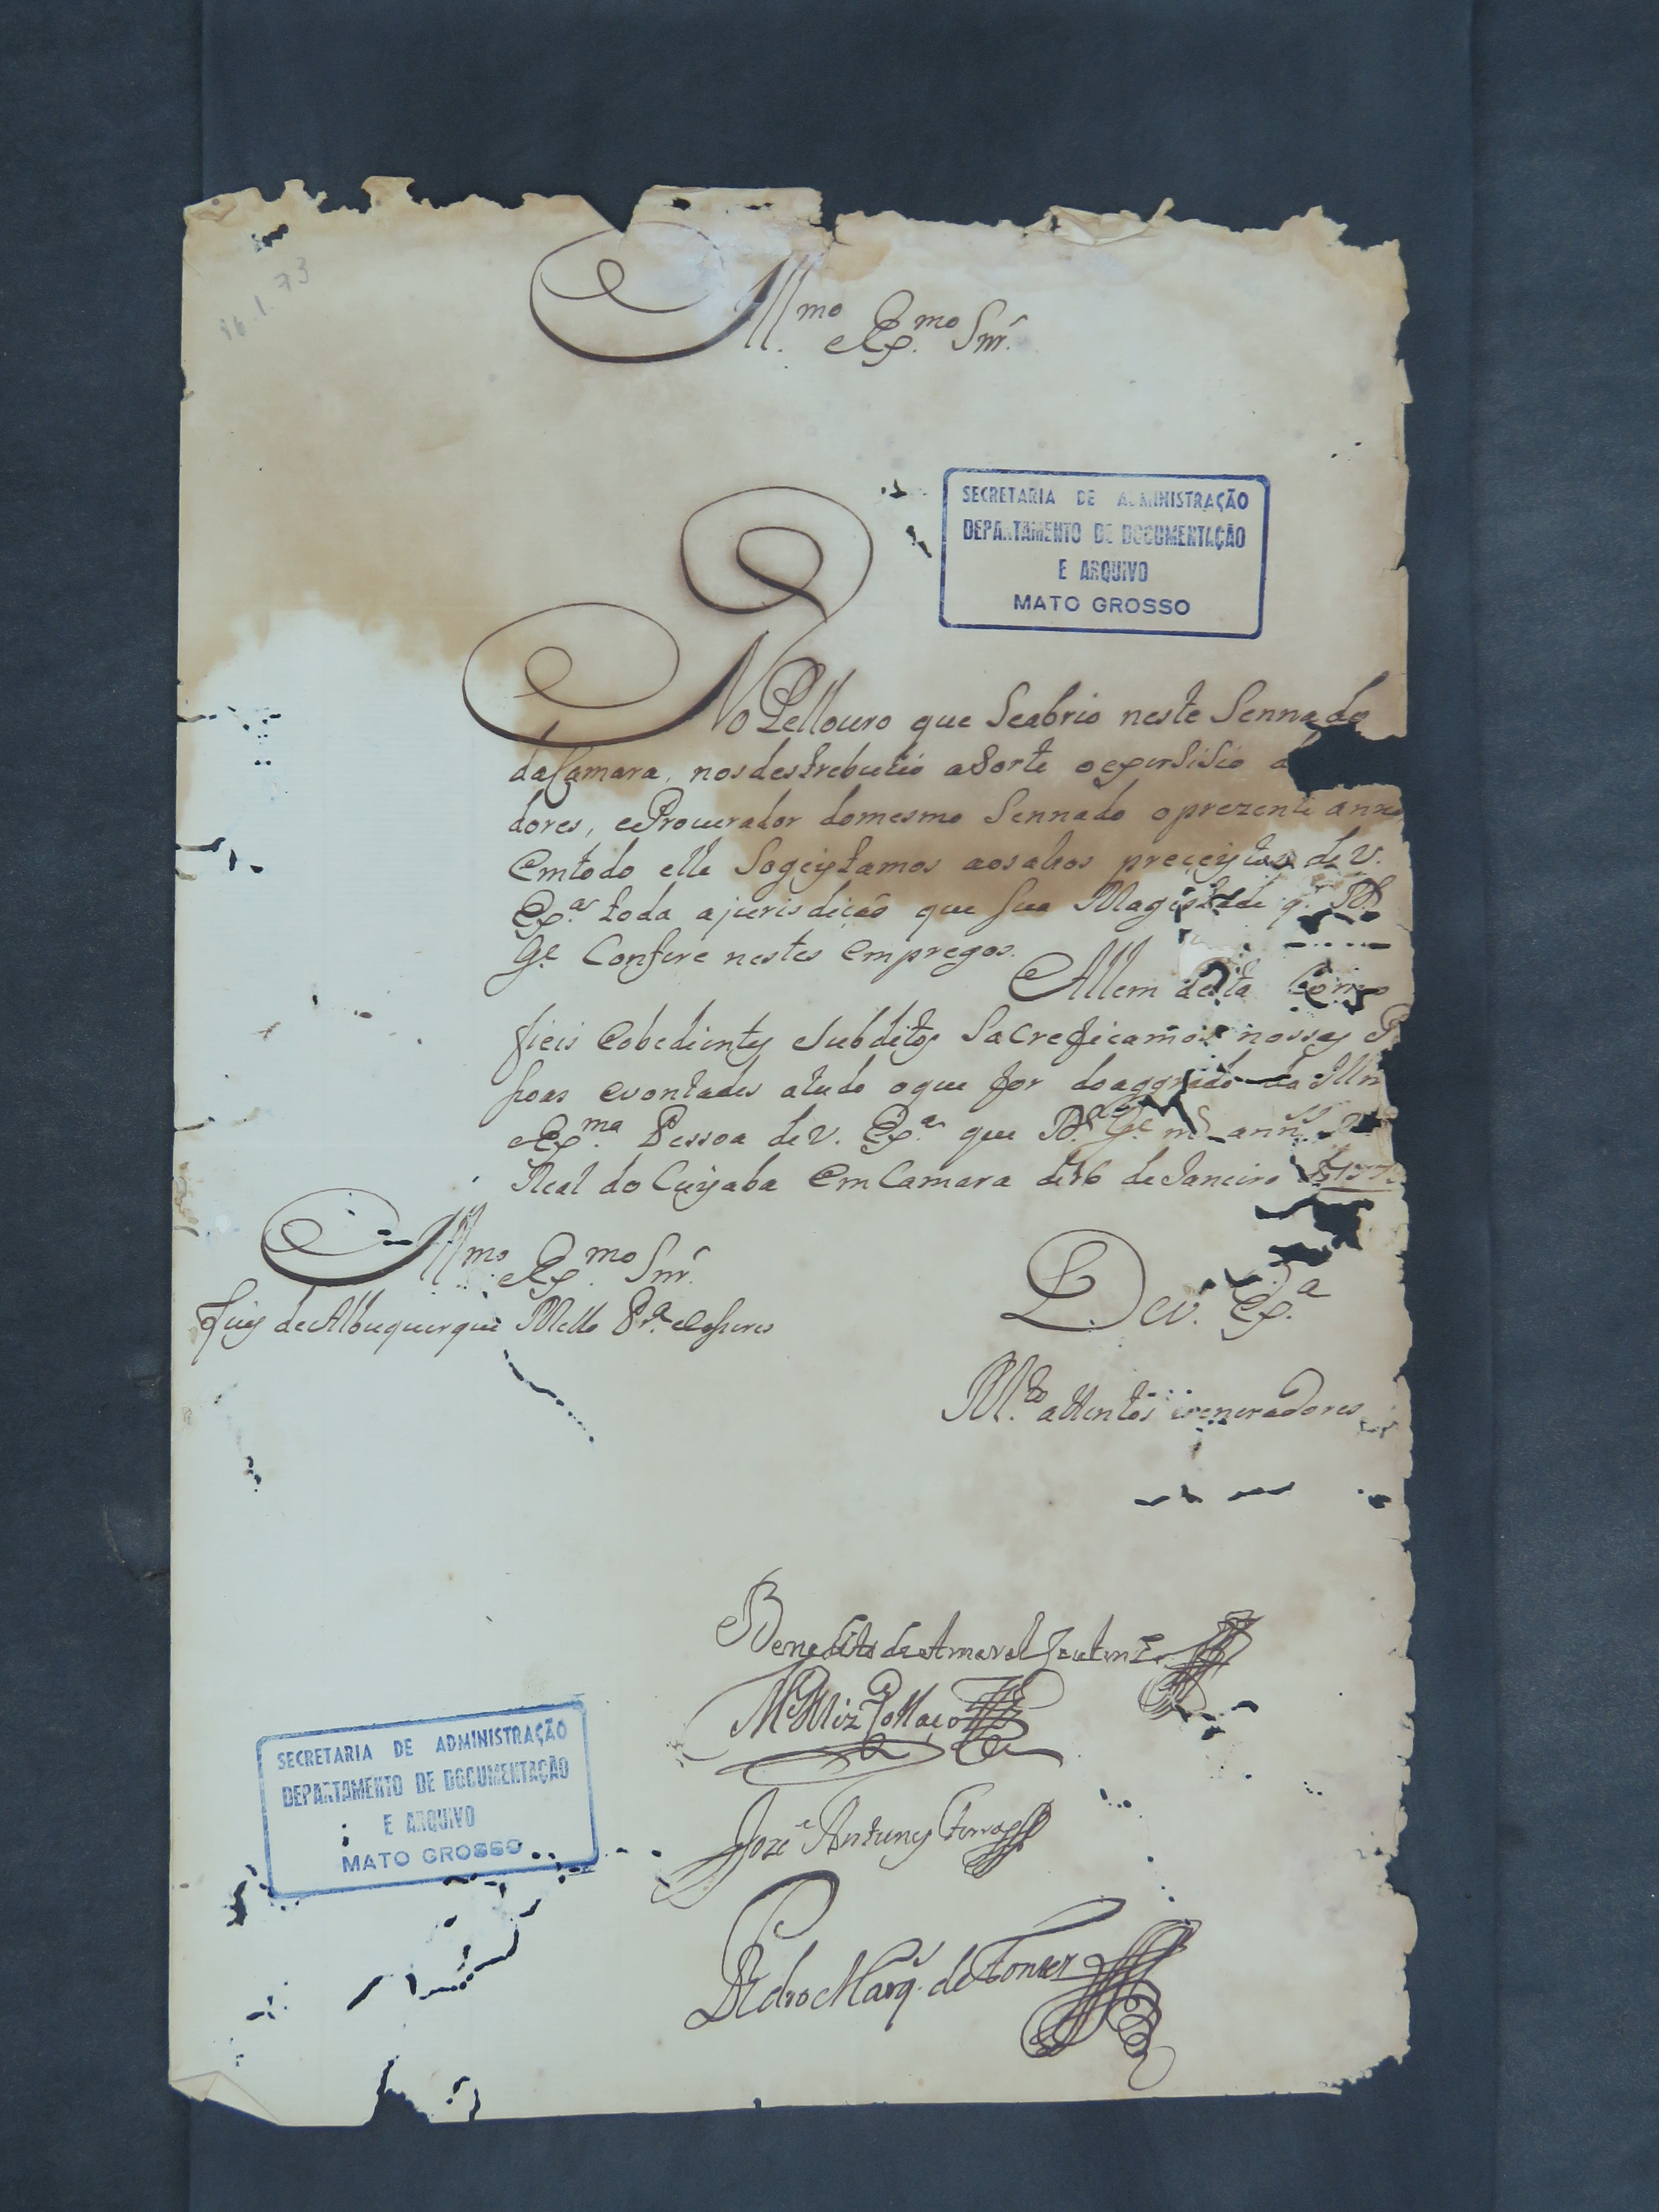 16.1.73
Illmo. e Exmo. Snr.
SECRETARIA DE ADMINISTRAÇÃO
DEPARTAMENTO DE DOCUMENTAÇÃO
E ARQUIVO
MATO GROSSO
No Pellouro que Seabrio neste Sennado
daCamara, nosdestrebuhio aSorte oexersisio
dores, eProcurador domesmo Sennado oprezente anno
Emtodo elle Sogeytamos aosaltos preceytos de V.
Exa. toda ajurisdição que Sua Magestade q. Ds.
Ge. Confere nestes Empregos.
Allem desta Como
fieis Eobedientes Subditos Sacreficamos nossas
soas evontades atudo oque for doaggrado da Illm
eExma. Pessoa deV. Exa. que Ds. Ge. ms. anns.
Real do Cuyaba Em Camara de 16 de Janeiro
Illmo. e Exmo. Snr.
Luis deAlbuquerque Mello Pra. eCaseres
DeV. Exa.
Mto. attentos veneradores
Benedito de Amaral
José Antunes
Pedro Marq. de
SECRETARIA DE ADMINISTRAÇÃO
DEPARTAMENTO DE DOCUMENTAÇÃO
E ARQUIVO
MATO GROSSO